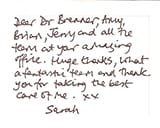 Dear Dr Brenner, Amy,
Brian, Jenny and all the
team at your amazing
office. Huge thanks, what
a fantastic team and Thank
you for taking the best
care of me. xx
Sarah